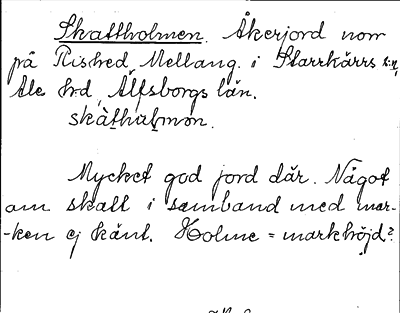 Skattholmen. Åkerjord norr
på Rished Mellang. i Starrkärrs s:n,
Ale hrd, Älfsborgs län.
skàthúlmon.
Mycket god jord där. Något
om skatt i samband med mar-
-ken ej känt. Holme = markhöjd?